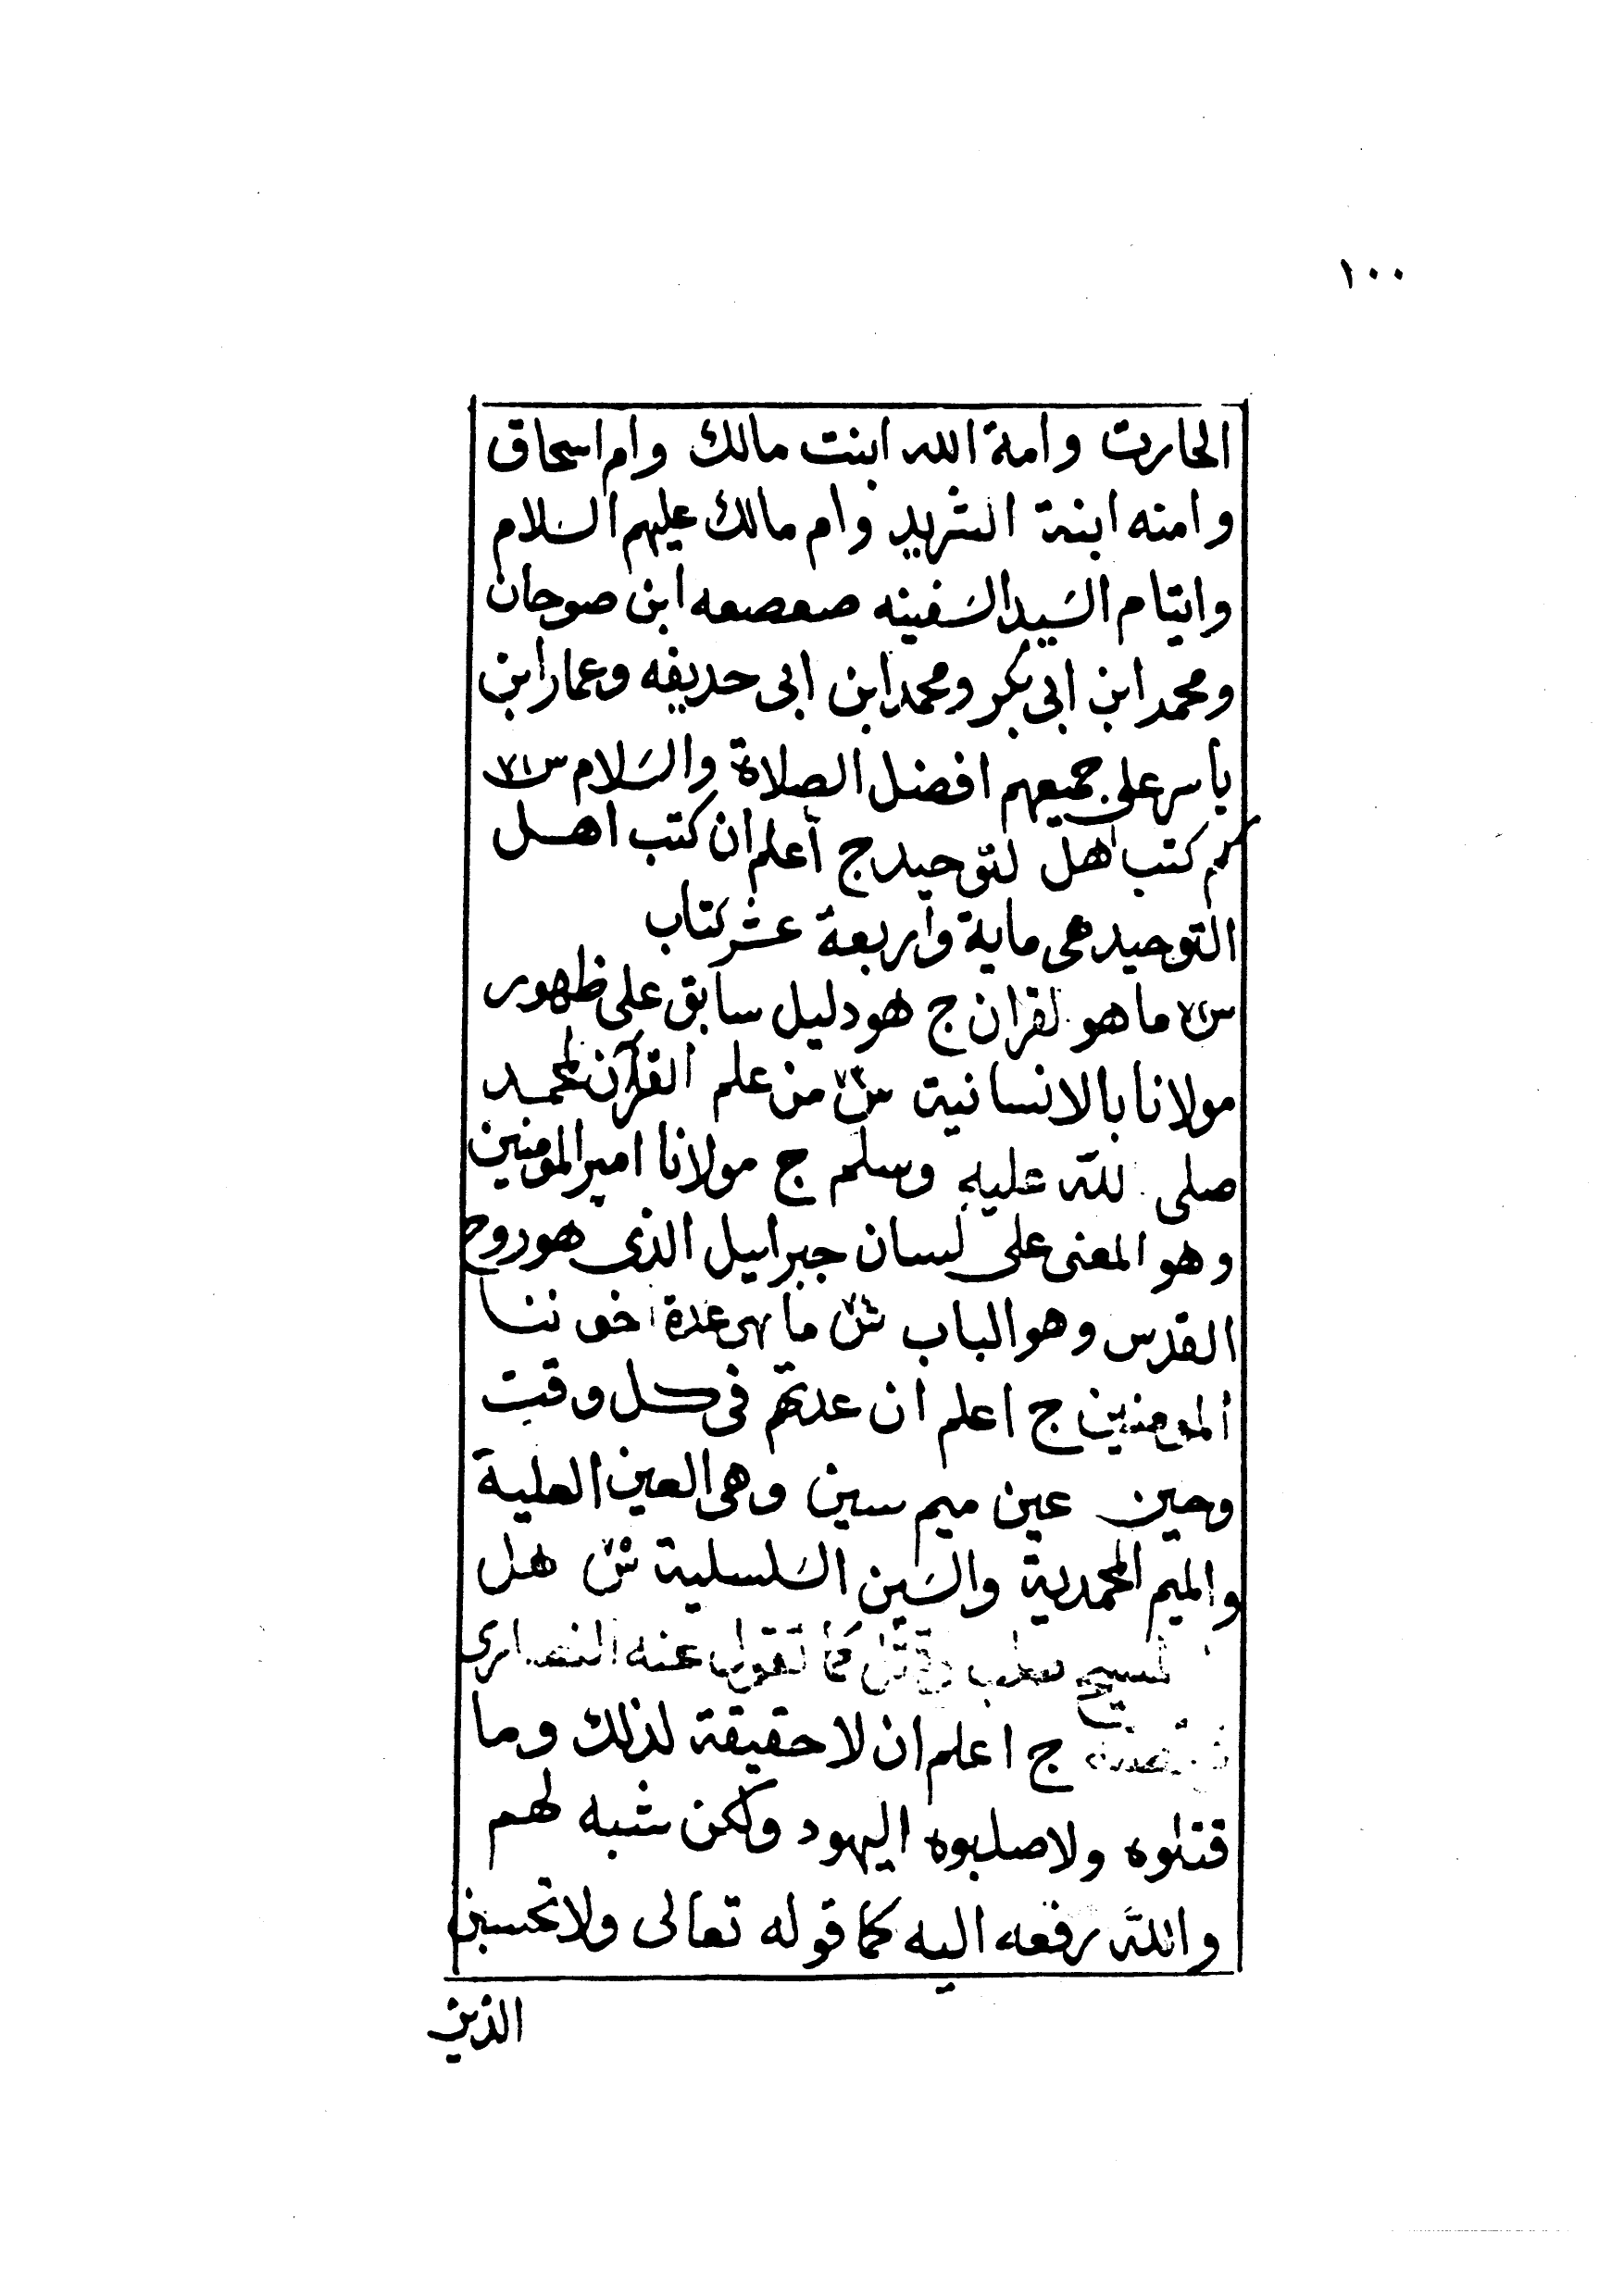 ١٠٠
الحارت وامة الله ابنت مالك وام اسحاق
وامنه ابنة الشريد وام مالك عليهم السلام
وايتام السيد السفينه صعصعه ابن صوحان
ومحمد ابن ابى بكر ومحمد ابن ابى حديفه وعمار ابن
ياسر على جميعهم افضل الصلاة والسلام س٧١
كم كتب اهل لتوحيد ج أعلم ان كتب اهل
التوحيد هى ماية واربعة عشر كتاب
س٧٢ ما هو لقران ج هو دليل سابق على ظهور
مولانا بالانسانية س٧٣ من علم القرآن لمحمد
صلى لله عليه وسلم ج مولانا امير المومنين
وهو المعنى على لسان جبراييل الذى هو روح
القدس وهو الباب س٧٤ ما هى عدة اخوننا
المومنين ج اعلم ان عدتهم فى كل وقت
وحين عين ميم سين وهى العين العلية
والميم المحمدية والسين السلسلية س٧٥ هل
لمسيح صلب كما تقول عنه النصارى
ج اعلم ان لا حقيقة لذلك وما
قتلوه ولا صلبوه اليهود ولكن شبه لهم
والله رفعه اليه كما قوله تعالى ولا تحسبن
الذين